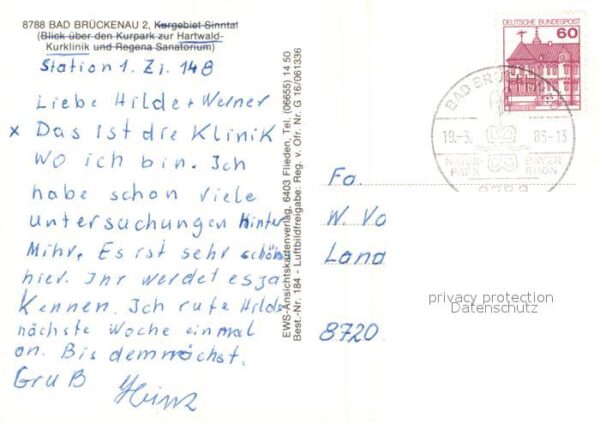 8788 BAD BRÜCKENAU 2, Kurgebiet Sinntal
(Blick über den Kurpark zur Hartwald-
Kurklinik und Regena Sanatorium)
Station 1. Zi. 148
Liebe Hilde + Werner
x Das ist die Klinik
wo ich bin. Ich
habe schon viele
untersuchungen Hinter
Mihr. Es ist sehr schön
hier. Ihr werdet es ja
Kennen. Ich rufe Hilde
nächste Woche einmal
an. Bis demnächst.
Gruß Heinz
EWS-Ansichtskartenverlag, 6403 Flieden, Tel. (06655) 14 50
Best.-Nr. 184 - Luftbildfreigabe: Reg. v. Ofr. Nr. G 16/061336
DEUTSCHE BUNDESPOST
60
BAD BRÜCKENAU
19.-3. 83-13
NATUR-
PARK
BAYER
RHÖN
8788
Fa.
W. Vo
Land
8720
privacy protection
Datenschutz